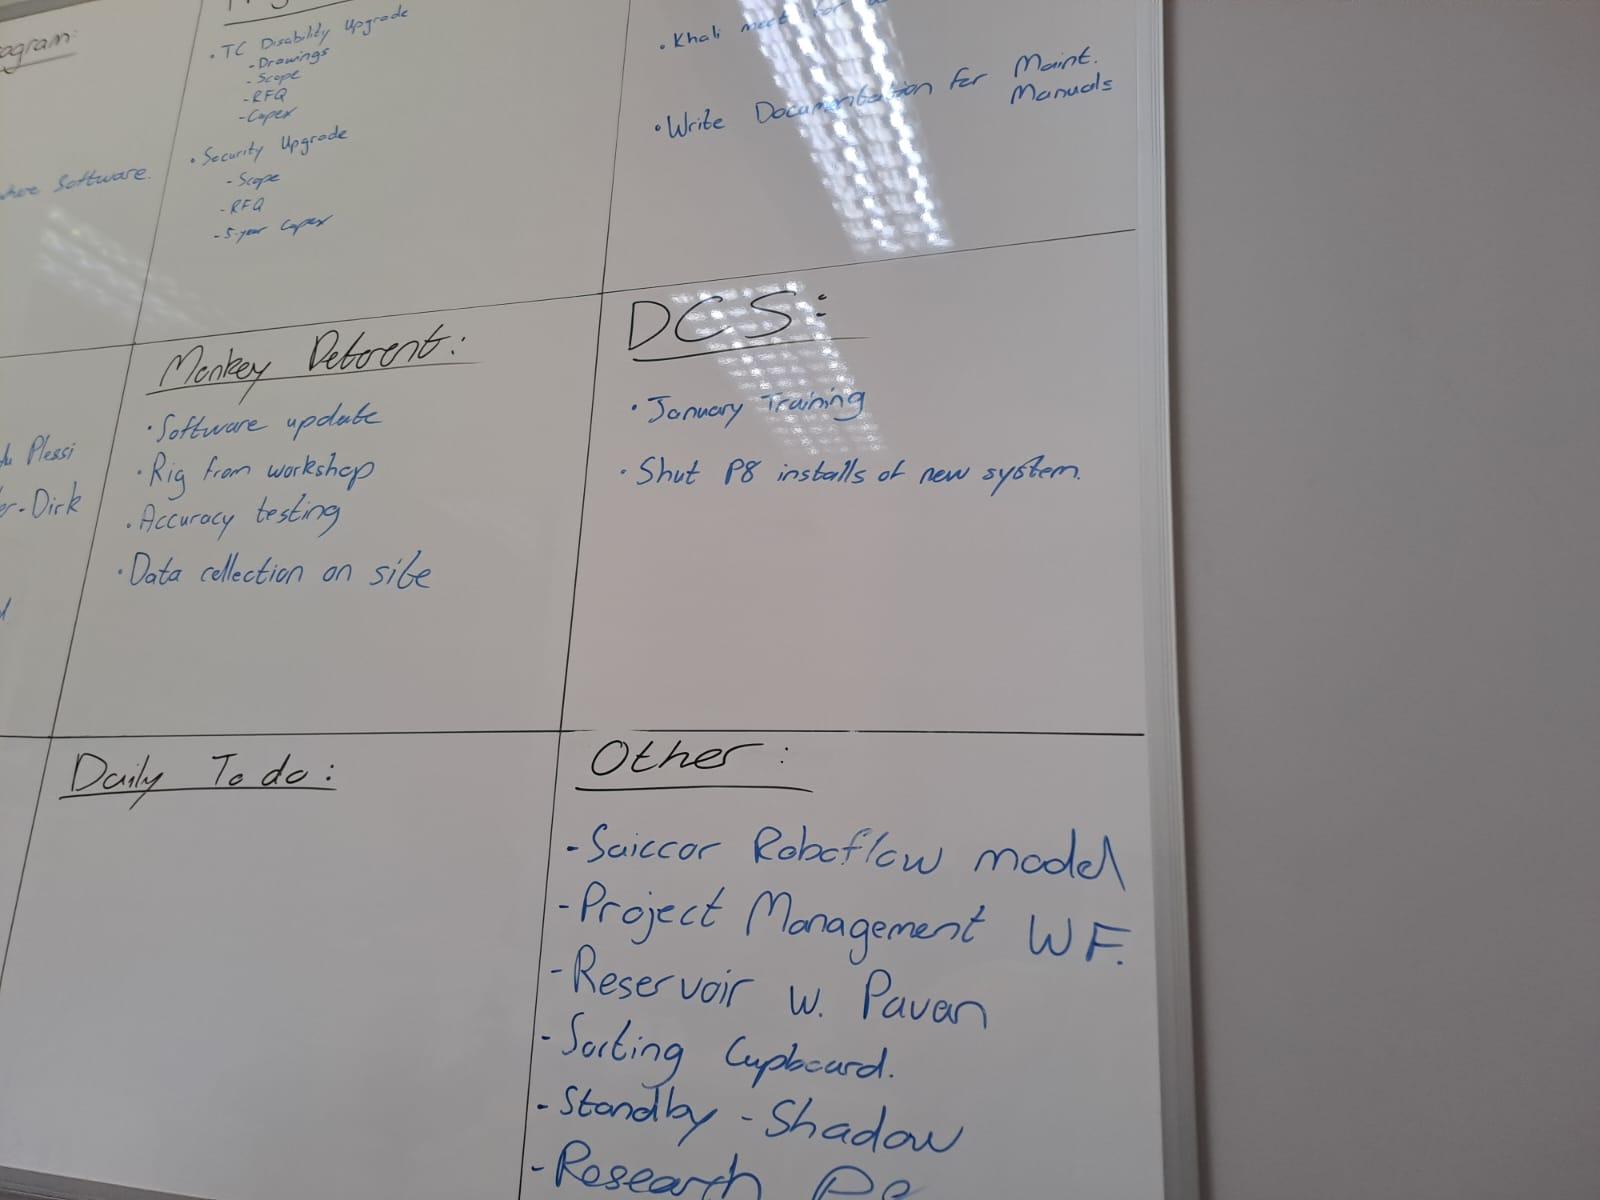 • TC Disability Upgrade
- Drawings
- Scope
- RFQ
- Capex
• Security Upgrade
- Scope
- RFQ
- 5-year Capex
• Khali meet for
• Write Documentation for Maint.
Manuals
Software.
Plessi
-Dirk
Monkey Deterent:
• Software update
• Rig from workshop
• Accuracy testing
• Data collection on site
DCS:
• January Training
• Shut P8 installs of new system.
Daily To do:
Other:
- Saiccor Roboflow model
- Project Management WF.
- Reservoir w. Pavan
- Sorting Cupboard.
- Standby - Shadow
- Research